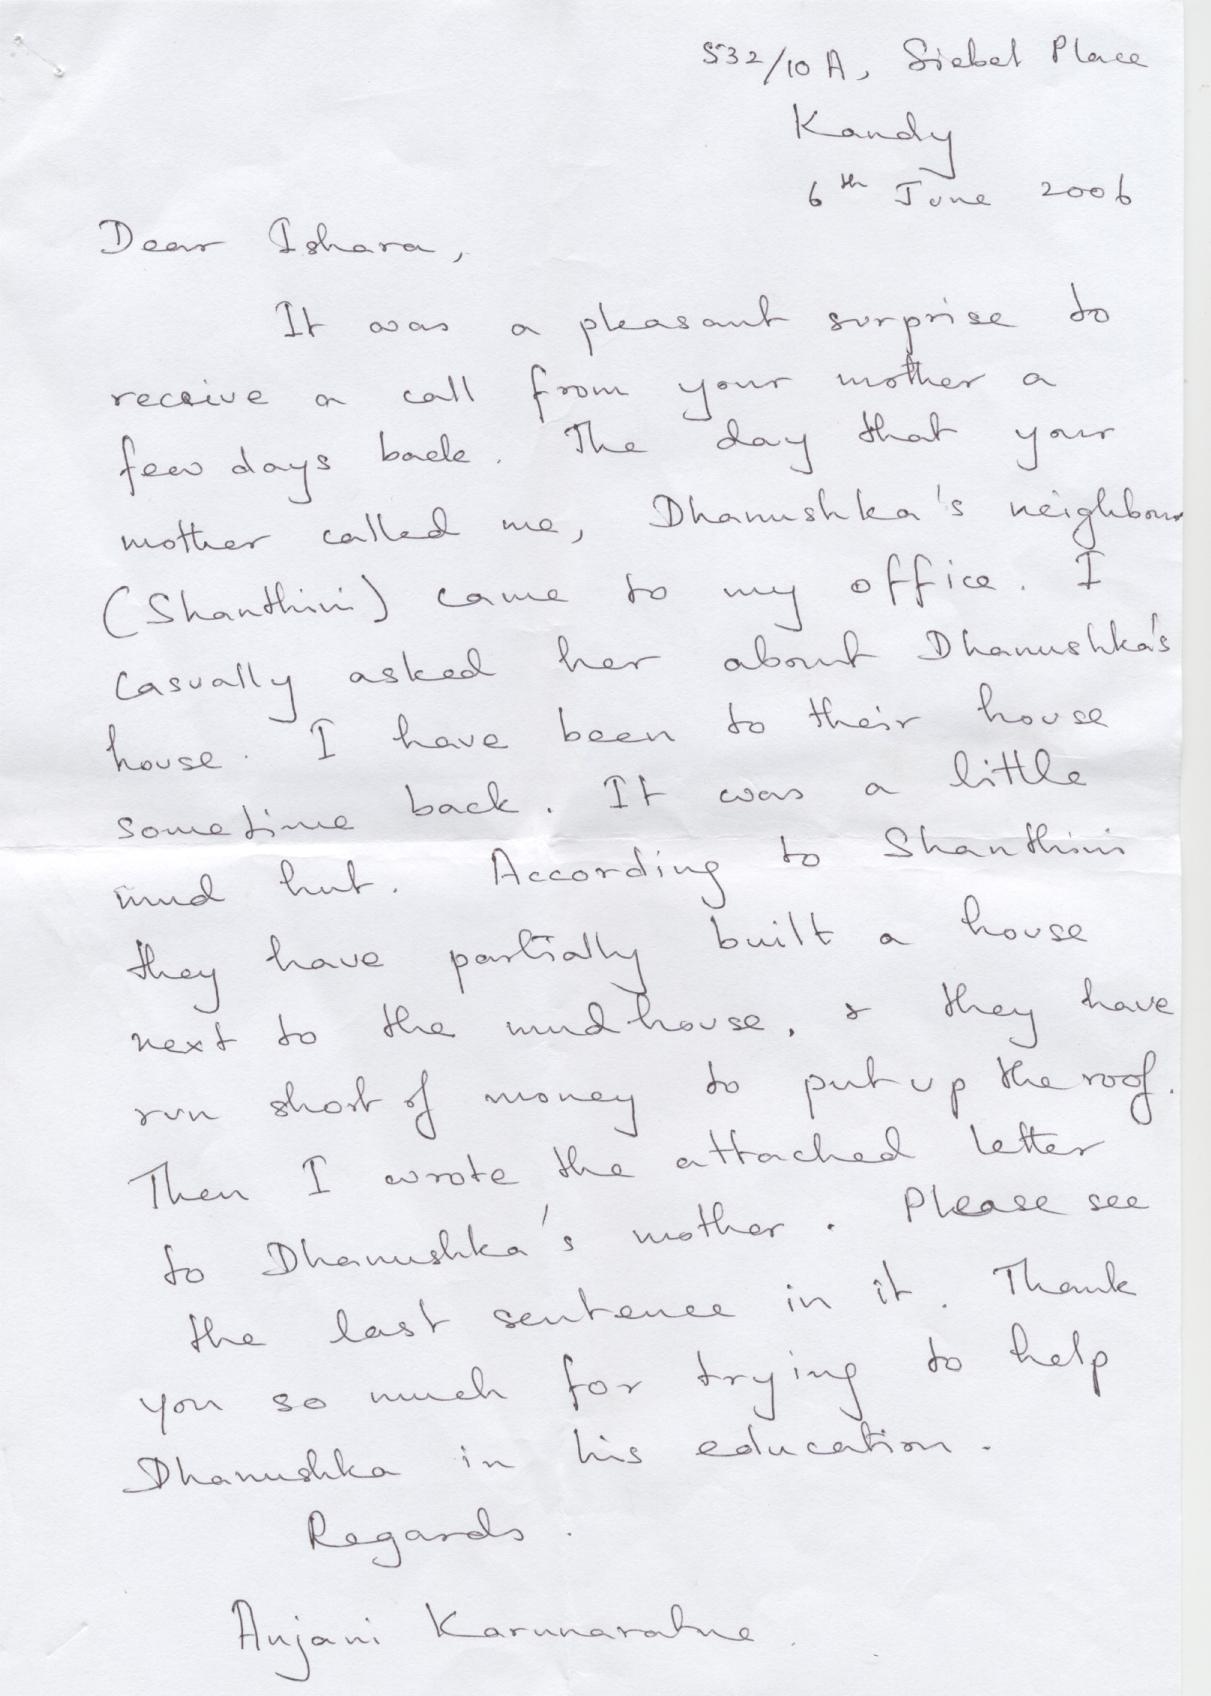 532/10 A, Siebel Place
Kandy
6th June 2006
Dear Ishara,
It was a pleasant surprise to
receive a call from your mother a
few days back. The day that your
mother called me, Dhanushka's neighbour
(Shanthini) came to my office. I
casually asked her about Dhanushka's
house. I have been to their house
sometime back. It was a little
mud hut. According to Shanthini
they have partially built a house
next to the mud house, & they have
run short of money to put up the roof.
Then I wrote the attached letter
to Dhanushka's mother. Please see
the last sentence in it. Thank
you so much for trying to help
Dhanushka in his education.
Regards.
Anjani Karunaratne.